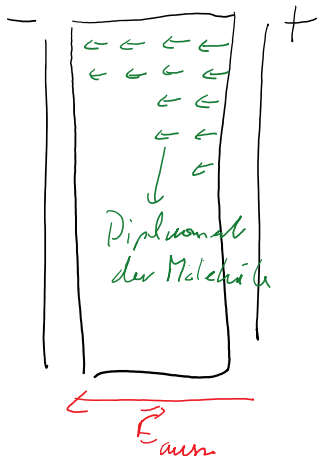 − +
Dipolmoment
der Moleküle
E⃗ aussen